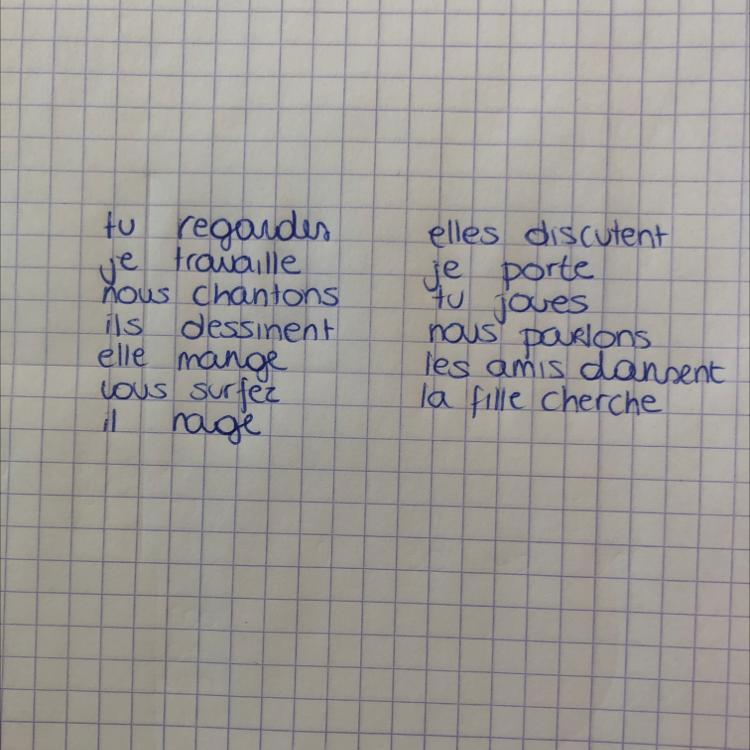 tu regardes
je travaille
nous chantons
ils dessinent
elle mange
vous surfez
il nage
elles discutent
je porte
tu joues
nous parlons
les amis dansent
la fille cherche